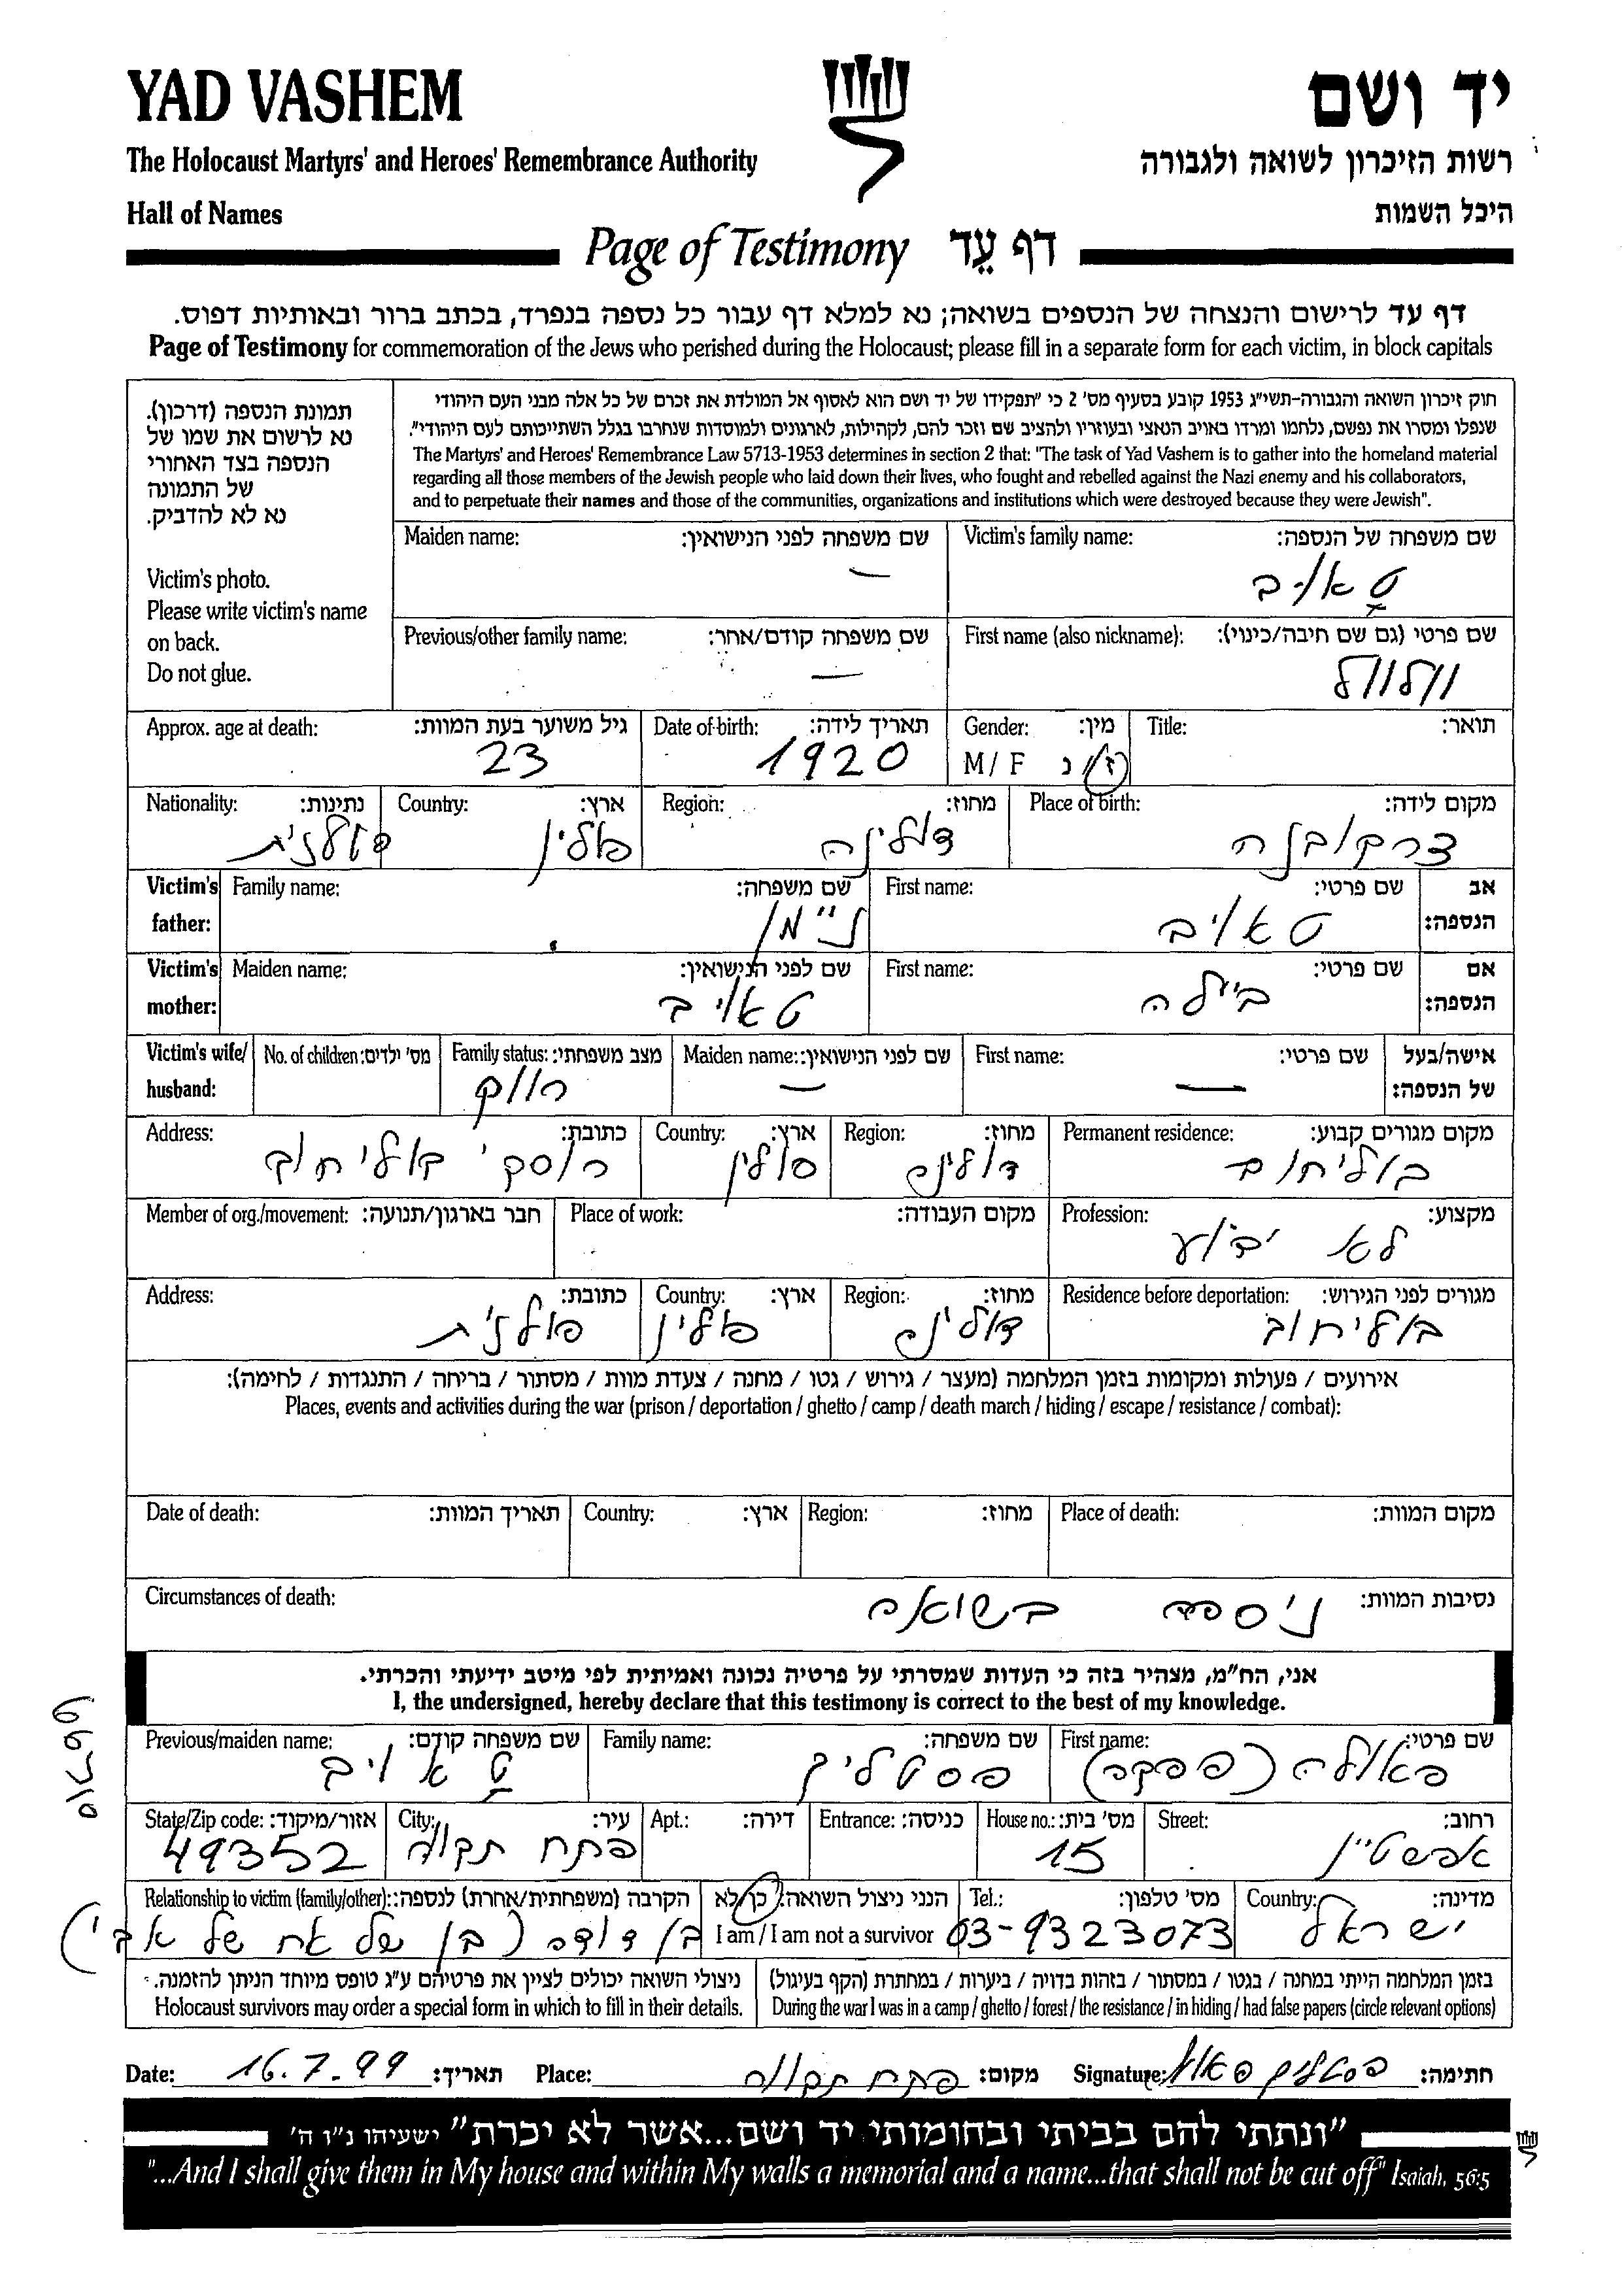 YAD VASHEM
יד ושם
The Holocaust Martyrs' and Heroes' Remembrance Authority
רשות הזיכרון לשואה ולגבורה
Hall of Names
היכל השמות
Page of Testimony דף עֵד
דף עד לרישום והנצחה של הנספים בשואה; נא למלא דף עבור כל נספה בנפרד, בכתב ברור ובאותיות דפוס.
Page of Testimony for commemoration of the Jews who perished during the Holocaust; please fill in a separate form for each victim, in block capitals
תמונת הנספה (דרכון).
נא לרשום את שמו של
הנספה בצד האחורי
של התמונה
נא לא להדביק.
Victim's photo.
Please write victim's name
on back.
Do not glue.
חוק זיכרון השואה והגבורה-תשי"ג 1953 קובע בסעיף מס' 2 כי "תפקידו של יד ושם הוא לאסוף אל המולדת את זכרם של כל אלה מבני העם היהודי
שנפלו ומסרו את נפשם, נלחמו ומרדו באויב הנאצי ובעוזריו ולהציב שם וזכר להם, לקהילות, לארגונים ולמוסדות שנחרבו בגלל השתייכותם לעם היהודי".
The Martyrs' and Heroes' Remembrance Law 5713-1953 determines in section 2 that: "The task of Yad Vashem is to gather into the homeland material
regarding all those members of the Jewish people who laid down their lives, who fought and rebelled against the Nazi enemy and his collaborators,
and to perpetuate their names and those of the communities, organizations and institutions which were destroyed because they were Jewish".
Maiden name: שם משפחה לפני הנישואין: Victim's family name: שם משפחה של הנספה:
— טאויב
Previous/other family name: שם משפחה קודם/אחר: First name (also nickname): שם פרטי (גם שם חיבה/כינוי):
— וולוול
Approx. age at death: גיל משוער בעת המוות: Date of birth: תאריך לידה: Gender: מין: Title: תואר:
23 1920 M / F ז/נ
Nationality: נתינות: Country: ארץ: Region: מחוז: Place of birth: מקום לידה:
פולנית פולין דולינה
Victim's father: Family name: שם משפחה: First name: שם פרטי: אב הנספה:
טאויב
Victim's mother: Maiden name: שם לפני הנישואין: First name: שם פרטי: אם הנספה:
טאויב ביילה
Victim's wife/ husband: No. of children: מס' ילדים: Family status: מצב משפחתי: Maiden name: שם לפני הנישואין: First name: שם פרטי: אישה/בעל של הנספה:
רווק — —
Address: כתובת: Country: ארץ: Region: מחוז: Permanent residence: מקום מגורים קבוע:
רוסקי בוליחוב פולין דולינה בוליחוב
Member of org./movement: חבר בארגון/תנועה: Place of work: מקום העבודה: Profession: מקצוע:
לא ידוע
Address: כתובת: Country: ארץ: Region: מחוז: Residence before deportation: מגורים לפני הגירוש:
פולנית פולין דולינה בוליחוב
אירועים / פעולות ומקומות בזמן המלחמה (מעצר / גירוש / גטו / מחנה / צעדת מוות / מסתור / בריחה / התנגדות / לחימה):
Places, events and activities during the war (prison / deportation / ghetto / camp / death march / hiding / escape / resistance / combat):
Date of death: תאריך המוות: Country: ארץ: Region: מחוז: Place of death: מקום המוות:
Circumstances of death: נסיבות המוות:
ניספה בשואה
אני, הח"מ, מצהיר בזה כי העדות שמסרתי על פרטיה נכונה ואמיתית לפי מיטב ידיעתי והכרתי.
I, the undersigned, hereby declare that this testimony is correct to the best of my knowledge.
Previous/maiden name: שם משפחה קודם: Family name: שם משפחה: First name: שם פרטי:
טאויב פסטליק פאולה (פפקה)
State/Zip code: אזור/מיקוד: City: עיר: Apt.: דירה: Entrance: כניסה: House no.: מס' בית: Street: רחוב:
49352 פתח תקווה 15 אפשטיין
Relationship to victim (family/other): הקרבה (משפחתית/אחרת) לנספה: הנני ניצול השואה: כן/לא Tel.: מס' טלפון: Country: מדינה:
בן דודה (בן של אח של אבי) I am / I am not a survivor 03-9323073 ישראל
ניצולי השואה יכולים לציין את פרטיהם ע"ג טופס מיוחד הניתן להזמנה.
Holocaust survivors may order a special form in which to fill in their details.
בזמן המלחמה הייתי במחנה / בגטו / במסתור / בזהות בדויה / ביערות / במחתרת (הקף בעיגול)
During the war I was in a camp / ghetto / forest / the resistance / in hiding / had false papers (circle relevant options)
Date: 16.7.99 תאריך: Place: פתח תקווה מקום: Signature: פסטליק פאולה חתימה:
"ונתתי להם בביתי ובחומותי יד ושם...אשר לא יכרת" ישעיהו נ"ו ה'
"...And I shall give them in My house and within My walls a memorial and a name...that shall not be cut off" Isaiah, 56:5